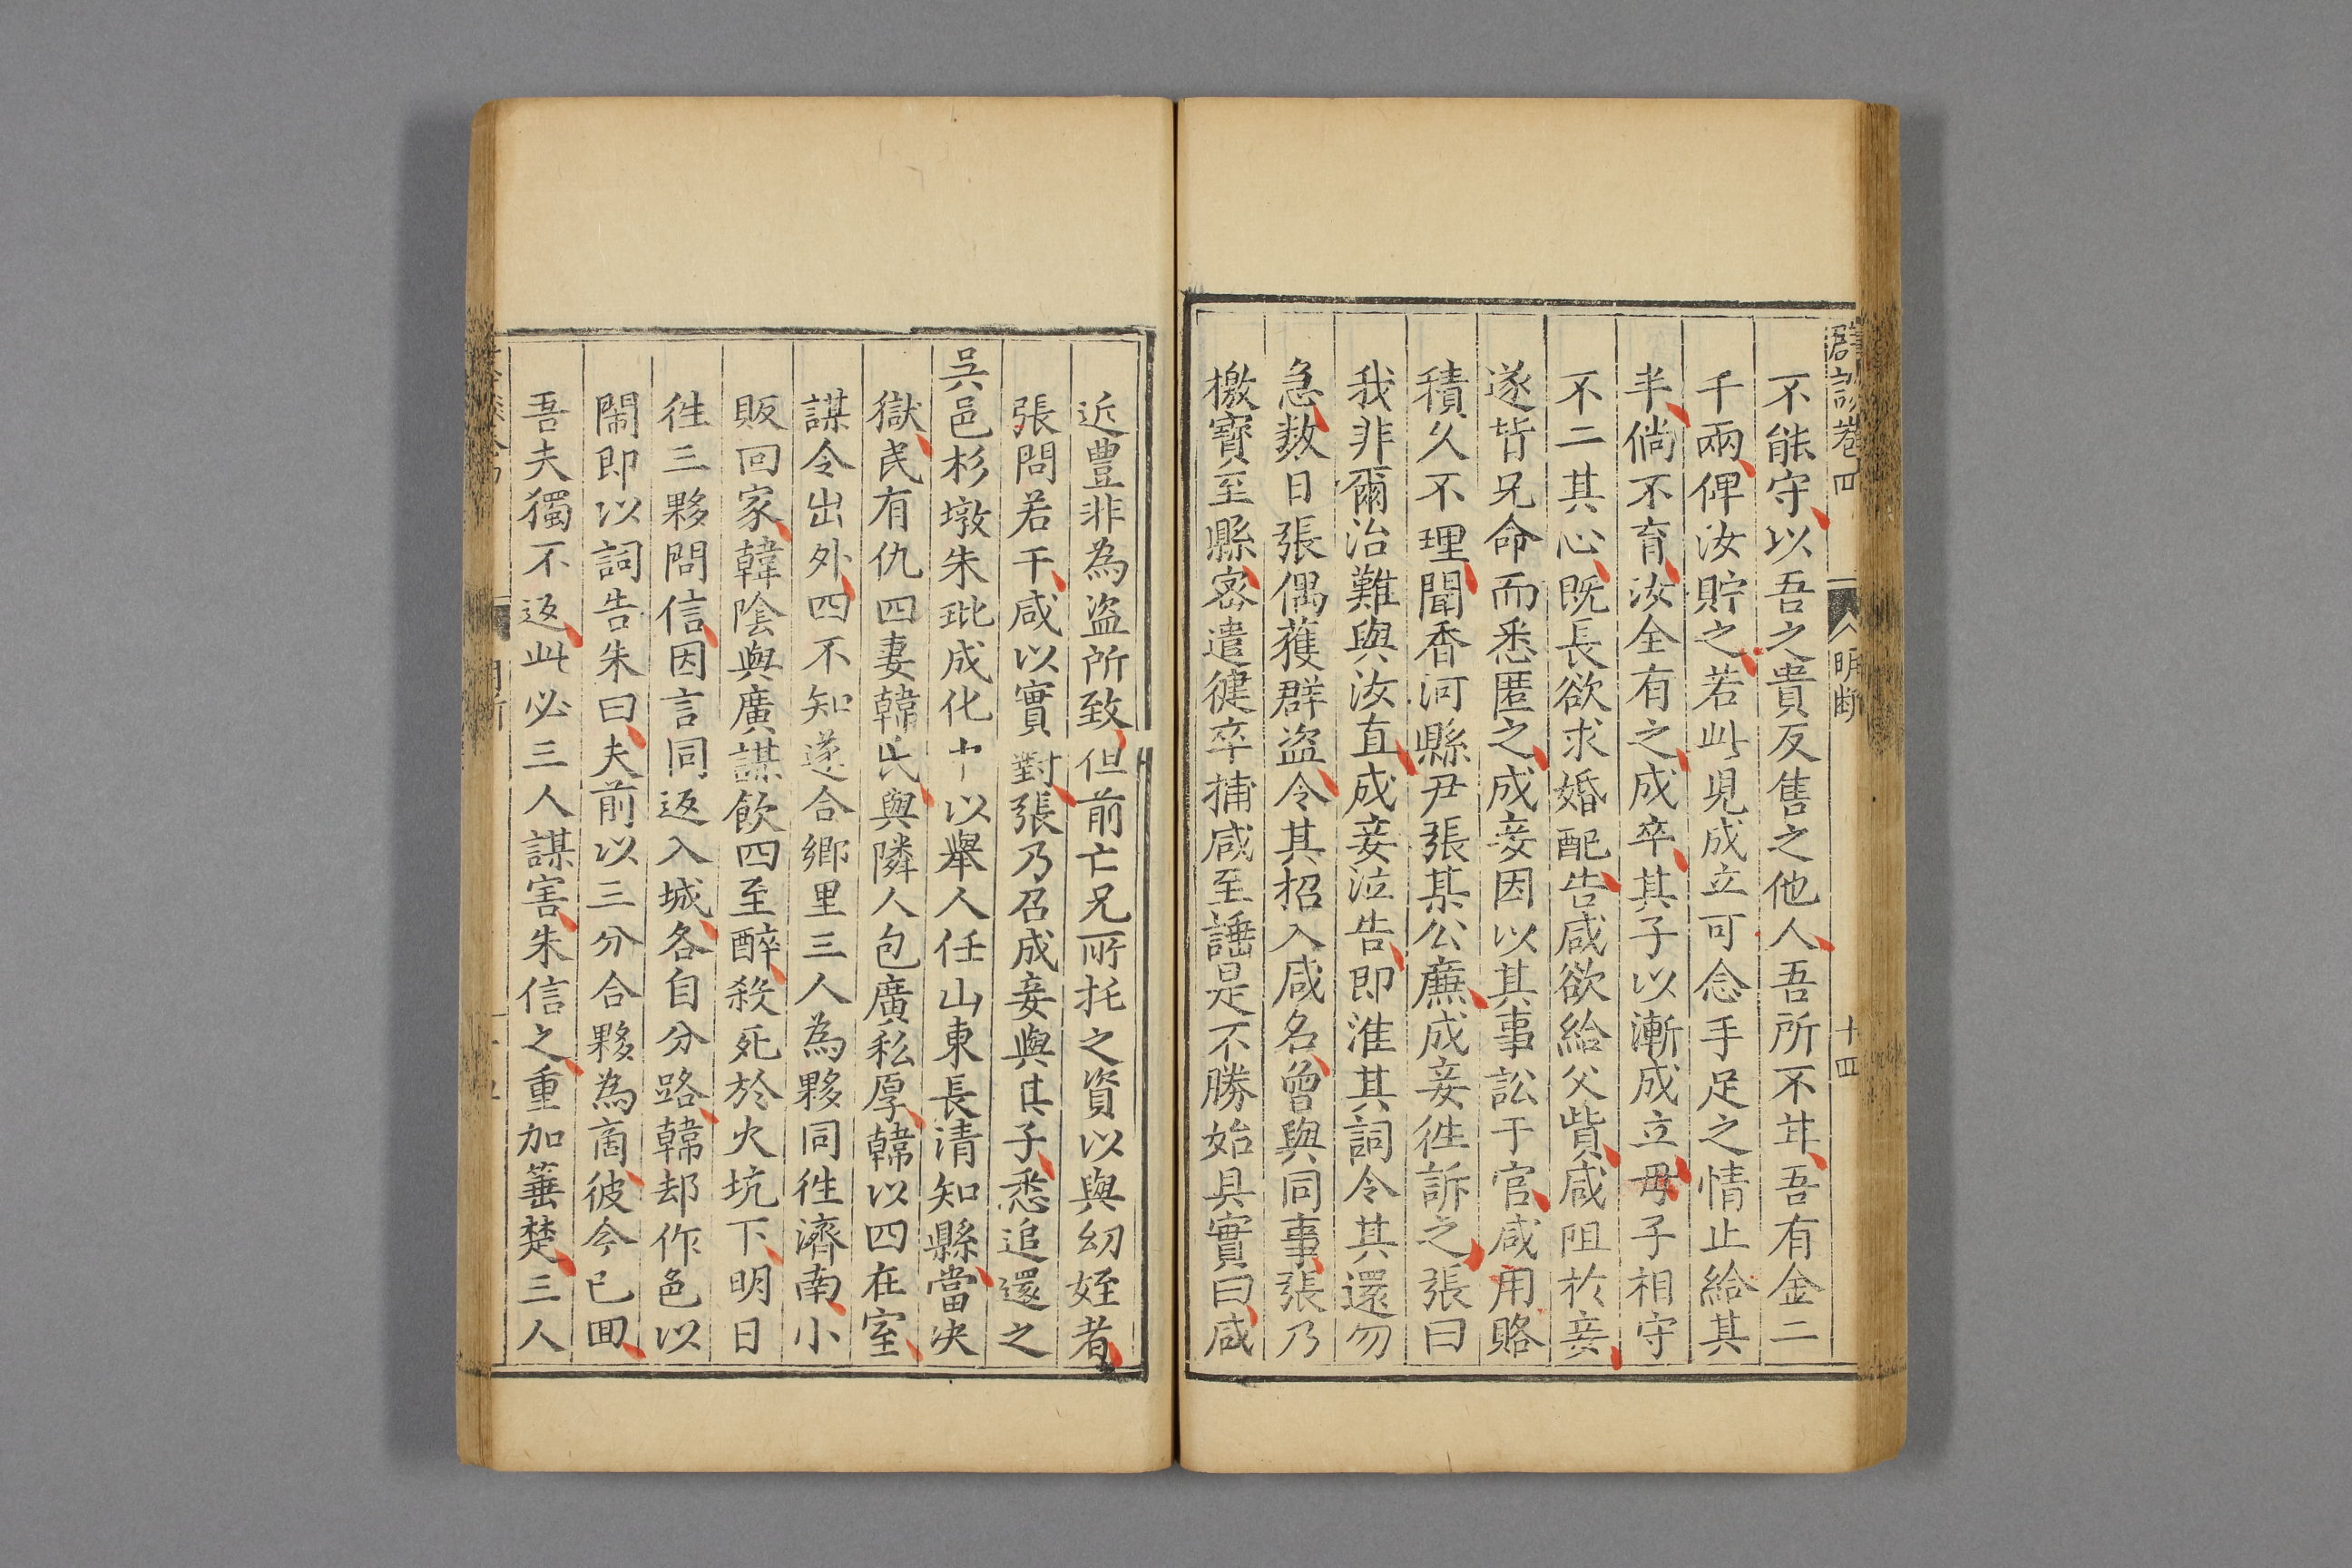 卷四
明斷
十四
不能守以吾之貴反售之他人吾所不甘吾有金二
千兩俾汝貯之若此児成立可念手足之情止給其
半倘不育汝全有之成卒其子以漸成立毋子相守
不二其心既長欲求婚配告咸欲給父貲咸阻於妾
遂背兄命而悉匿之成妾因以其事訟于官咸用賂
積久不理聞香河縣尹張某公廉成妾徃訴之張曰
我非爾治難與汝直成妾泣告即准其詞令其還勿
急数日張偶獲群盜令其招入咸名曾與同事張乃
檄寳至縣密遣健卒捕咸至誣是不勝始具實曰咸
近豊非為盜所致但前亡兄所托之資以與幼姪者
張問若干咸以實對張乃召成妾與其子悉追還之
吳邑杉墩朱玭成化中以舉人任山東長清知縣當决
獄民有仇四妻韓氏與隣人包廣私厚韓以四在室
謀令出外四不知遂合鄉里三人為夥同徃濟南小
販回家韓陰與廣謀飲四至醉殺死於火坑下明日
徃三夥問信因言同返入城各自分路韓却作色以
鬧即以詞告朱曰夫前以三分合夥為商彼今已囬
吾夫獨不返此必三人謀害朱信之重加菙楚三人